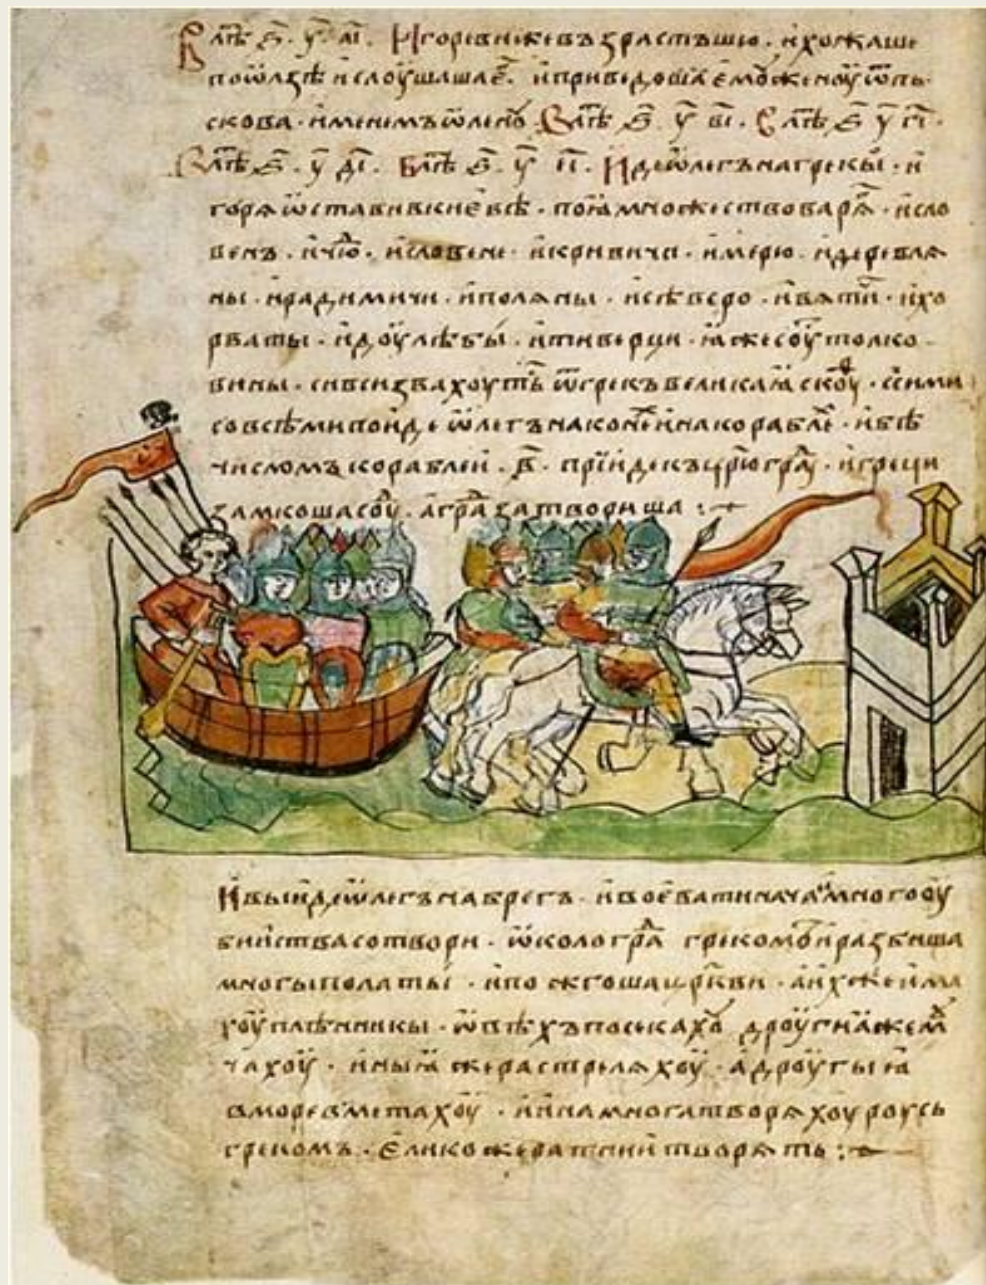 В лѣт҃ ҂s҃ . у҃ . а҃і . Игореви же възрастъшю . и хожаше
по ѡлзѣ и слоушаша е҃г . и приведоша емоу женоу ѿ пь
скова . именемъ ѡленоу . В лѣт҃ ҂s҃ . у҃ в҃і . В лѣт҃ ҂s҃ у҃ г҃і .
В лѣт҃ ҂s҃ . у҃ д҃і . В лѣт҃ ҂s҃ . у҃ е҃і . Иде ѡлегъ на грекы . и
горя ѡставив в киевѣ . поя множество варяг . и сло
венъ . и чюд . и словене . и кривичи . и мерю . и деревля
ны . и радимичи . и поляны . и сѣверо . и вятичи . и хо
рваты . и доулѣбы . и тиверци . яже соуть толко
вины . си вси звахоуть ѿ грекъ великая скоуф . с сими
со всѣми поиде ѡлегъ на конех и на кораблех . и бѣ
числомъ кораблеи . в҃ . прiиде къ ц҃рюград . и греци
замкоша соуд . а град затвориша :~
И выиде ѡлегъ на брегъ . и воевати нача . и много оу
биiства сотвори . ѡколо града грекомъ . и разбиша
многы полаты . и пожгоша ц҃ркви . а их же има
хоу плѣнникы . ѡвѣхъ посекахоу дроугиа же моу
чахоу . иныя же растреляхоу . а дроугыя
в море вметахоу . и ина многа творяхоу роусь
грекомъ . елико же ратнии творять :~